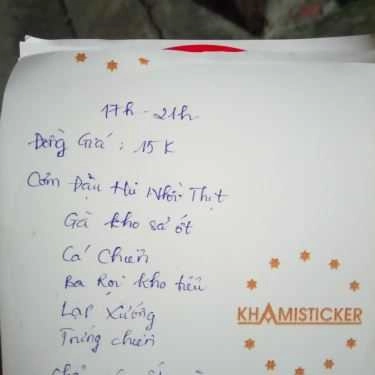 17h - 21h
Đồng Giá : 15K
Cơm Đậu Hủ Nhồi Thịt
Gà kho sả ớt
Cá Chiên
Ba Rọi kho tiêu
Lạp Xưởng
Trứng chiên
KHAMISTICKER